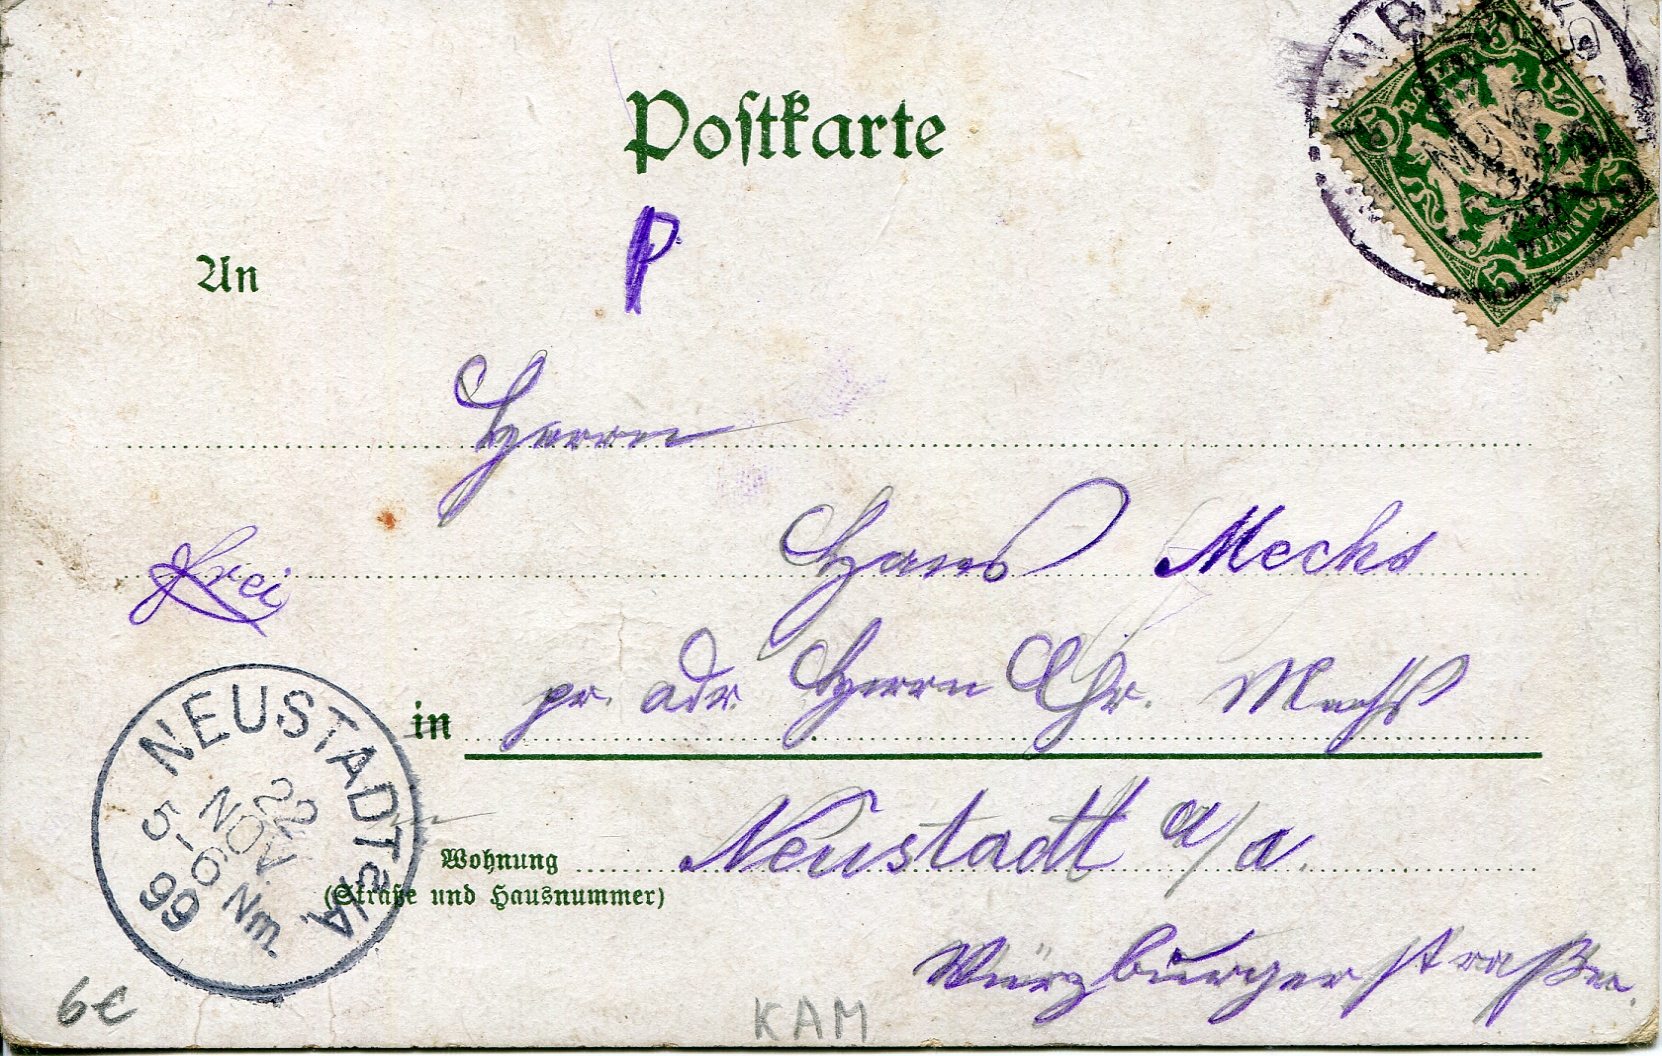 Postkarte
5 5 5
P
An
Herrn
Hans Mechs
frei
pr. adr. Herrn Chr. Mechs
in
NEUSTADT a/A
22
NOV.
5-6 Nm.
99
Neustadt a/a.
Wohnung
(Straße und Hausnummer)
Würzburgerstraße.
6€
KAM